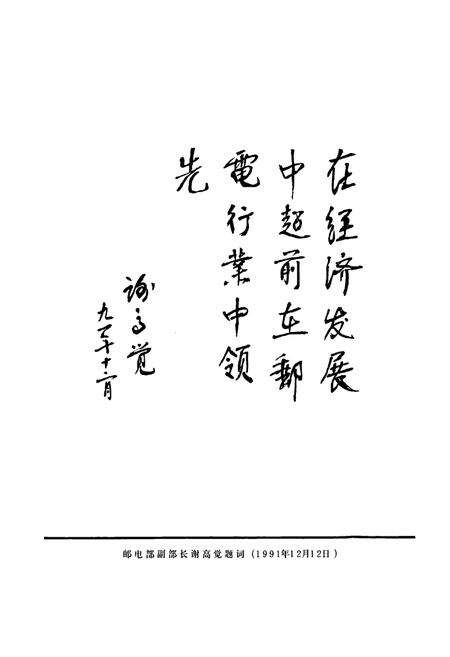 在经济发展
中超前在郵
電行業中领
先
谢高觉
九一年十二月
邮电部副部长谢高觉题词(1991年12月12日)